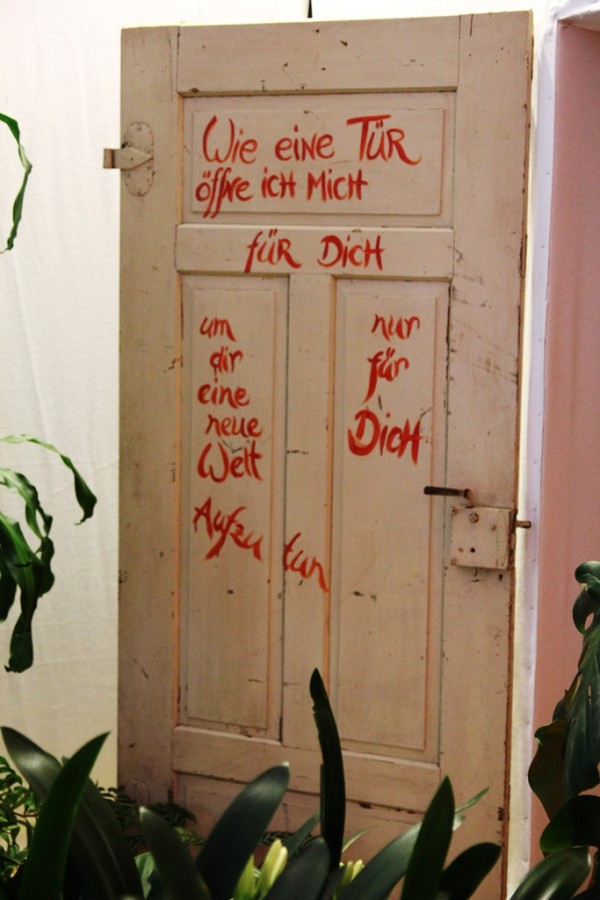 Wie eine TÜR
öffne icH MicH
für DicH
um
dir
eine
neue
Welt
Aufzu tun
nur
für
DicH